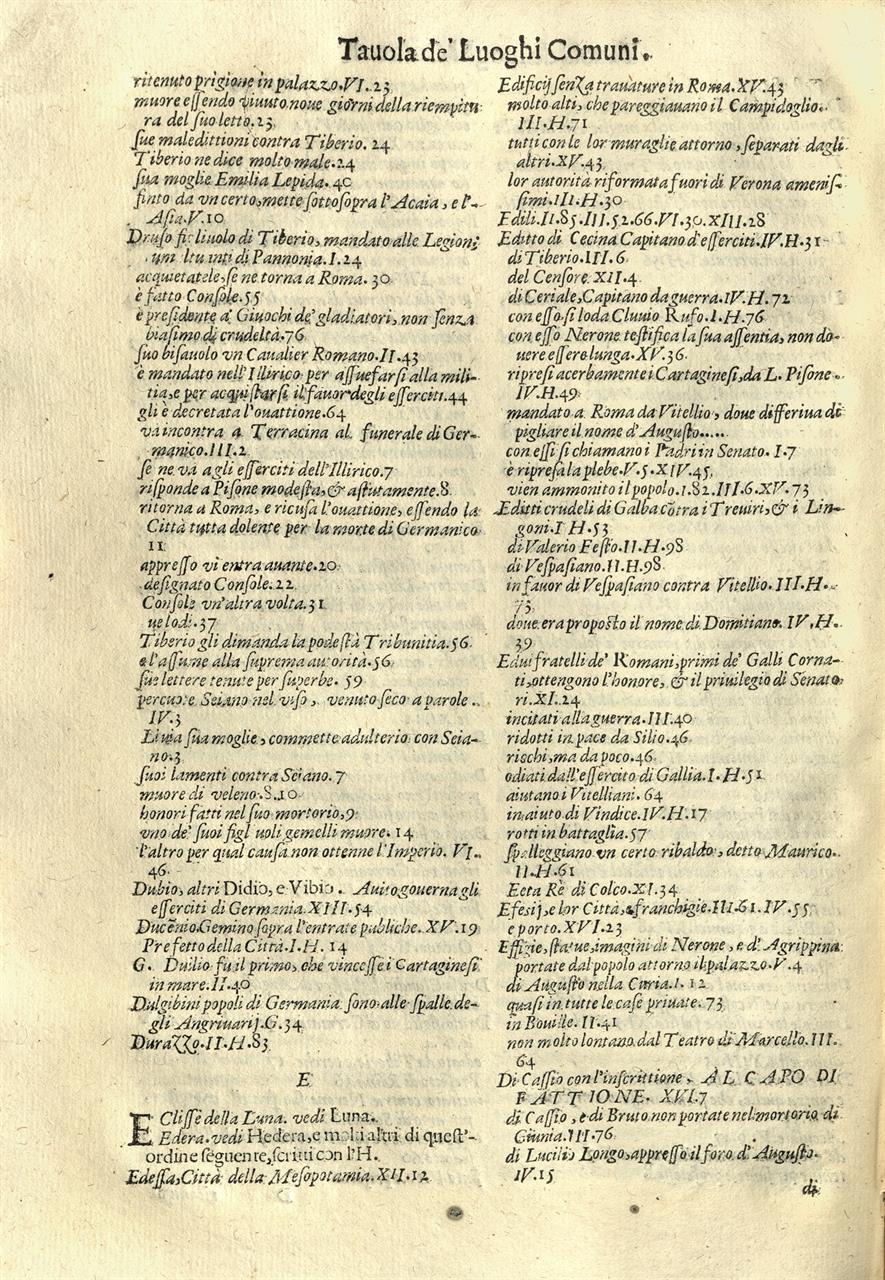 Tauola de' Luoghi Comuni.
ritenuto prigione in palazzo.VI.23
muore essendo viuuto noue giorni della riempitu-
ra del suo letto.23
sue maledittioni contra Tiberio. 24
Tiberio ne dice molto male.24
sua moglie Emilia Lepida. 40
finto da vn certo, mette sottosopra l'Acaia, e l'-
Asia.V.10
Druso figliuolo di Tiberio, mandato alle Legioni
di Pannonia.I.24
acquietatele, se ne torna a Roma. 30
è fatto Console.55
è presidente a' Giuochi de' gladiatori, non senza
biasimo di crudeltà.76
suo bisauolo vn Caualier Romano.II.43
è mandato nell'Illirico per assuefarsi alla mili-
tia, e per acquistarsi il fauor degli esserciti.44
gli è decretata l'ouattione.64
va incontra a Terracina al funerale di Ger-
manico.III.2
se ne và agli esserciti dell'Illirico.7
risponde a Pisone modesta, & astutamente.8
ritorna a Roma, e ricusa l'ouattione, essendo la
Città tutta dolente per la morte di Germanico
11
appresso vi entra auante.20
designato Console.22
Console vn'altra volta.31
sue lodi.37
Tiberio gli dimanda la podestà Tribunitia.56
e l'assume alla suprema autorità.56
sue lettere tenute per superbe. 59
percuote Seiano nel viso, venuto seco a parole.
IV.3
Liuia sua moglie, commette adulterio con Seia-
no.3
suoi lamenti contra Seiano. 7
muore di veleno.8.10
honori fatti nel suo mortorio,9
vno de' suoi figliuoli gemelli muore. 14
l'altro per qual causa non ottenne l'Imperio. VI.
46
Dubio, altri Didio, e Vibio. Auito gouerna gli
esserciti di Germania.XIII.54
Ducenio Gemino sopra l'entrate publiche. XV.19
Prefetto della Città.I.H. 14
G. Duilio fu il primo, che vincesse i Cartaginesi
in mare.II.40
Dulgibini popoli di Germania sono alle spalle de-
gli Angriuarij.G.34
Durazzo.II.H.83
E
EClisse della Luna. vedi Luna.
Edera. vedi Hedera, e molti altri di quest'-
ordine seguente, scritti con l'H.
Edessa, Città della Mesopotamia.XII.12
Edificij senza trauature in Roma.XV.43
molto alti, che pareggiauano il Campidoglio.
III.H.71
tutti con le lor muraglie attorno, separati dagli
altri.XV.43
lor autorità riformata fuori di Verona amenis-
simi.III.H.30
Edili.II.85.III.52.66.VI.30.XIII.28
Editto di Cecina Capitano d'esserciti.IV.H.31
di Tiberio.III.6
del Censore.XII.4
di Ceriale, Capitano da guerra.IV.H.72
con esso si loda Cluuio Rufo.I.H.76
con esso Nerone testifica la sua assentia, non do-
uere essere lunga.XV.36
ripresi acerbamente i Cartaginesi, da L. Pisone.
IV.H.49
mandato a Roma da Vitellio, doue differiua di
pigliare il nome d'Augusto.....
con essi si chiamano i Padri in Senato. I.7
è ripresa la plebe.V.5.XIV.45
vien ammonito il popolo.I.82.III.6.XV.73
Editti crudeli di Galba cōtra i Treuiri, & i Lin-
goni.I H.53
di Valerio Festo.II.H.98
di Vespasiano.II.H.98
in fauor di Vespasiano contra Vitellio.III.H.
73
doue era proposto il nome di Domitiano. IV.H.
39
Edui fratelli de' Romani, primi de' Galli Corna-
ti, ottengono l'honore, & il priuilegio di Senato-
ri.XI.24
incitati alla guerra.III.40
ridotti in pace da Silio.46
rischi, ma da poco.46
odiati dall'essercito di Gallia.I.H.51
aiutano i Vitelliani. 64
in aiuto di Vindice.IV.H.17
rotti in battaglia.57
spalleggiano vn certo ribaldo, detto Maurico.
II.H.61
Eeta Rè di Colco.XI.34
Efesij, e lor Città, franchigie.III.61.IV.55
e porto.XVI.23
Effigie, statue, imagini di Nerone, e d' Agrippina
portate dal popolo attorno il palazzo.V.4
di Augusto nella Curia.I.12
quasi in tutte le case priuate.73
in Bouille. II.41
non molto lontano dal Teatro di Marcello.III.
64
Di Cassio con l'inscrittione, AL CAPO DI
FATTIONE. XVI.7
di Cassio, e di Bruto non portate nel mortorio di
Giunia.III.76
di Lucilio Longo, appresso il foro d'Augusto.
IV.15
di